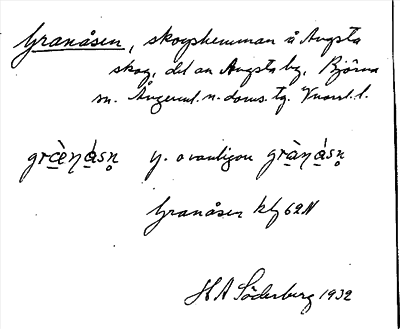 Granåsen, skogshemman å Ängsta
skog, del av Ängsta by, Björna
sn. Ångerml. n. doms. tg. Vnorrl. l.
græ̀násn̥ y. o vanligen grànásn̥
Granåsen kbl 62N
H A Söderberg 1932